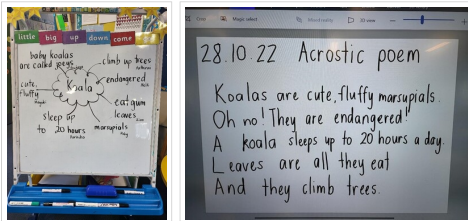 little big up down come
baby koalas
are called joeys
climb up trees
cute,
fluffy
Koala
endangered
eat gum
leaves
sleep up
to 20 hours
marsupials
Magic select
Mixed reality
3D view
28.10.22 Acrostic poem
Koalas are cute, fluffy marsupials.
Oh no! They are endangered!
A koala sleeps up to 20 hours a day.
Leaves are all they eat
And they climb trees.